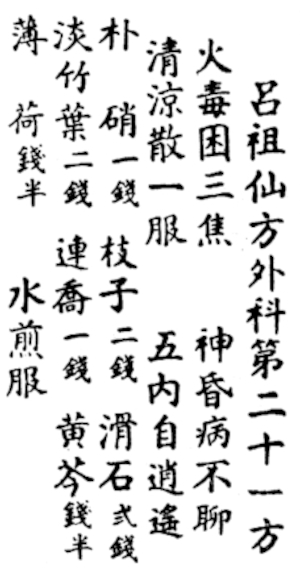 呂祖仙方外科第二十一方
火毒困三焦　神昏病不聊
清涼散一服　五內自逍遙
朴　硝一錢　枝子二錢　滑石弍錢
淡竹葉二錢　連喬一錢　黃芩錢半
薄　荷錢半　水煎服